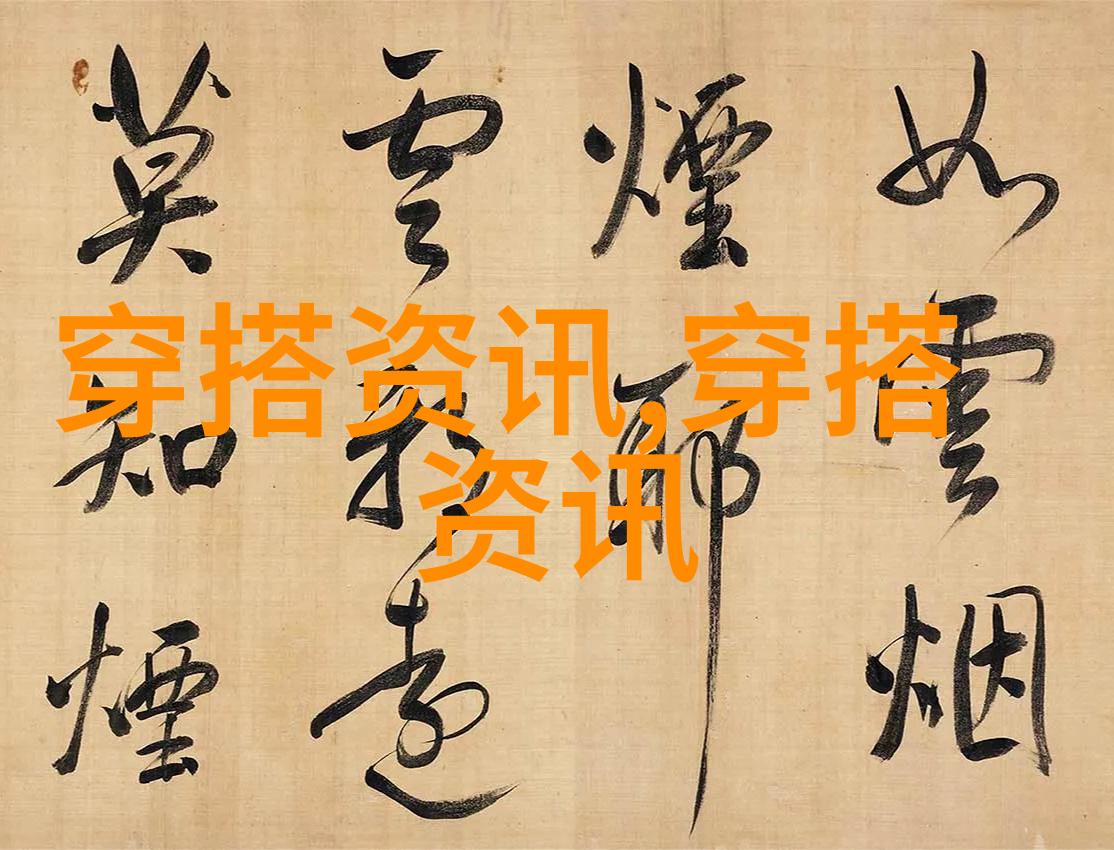 如雲烟
煙耶
雲遠
莫知煙
穿搭资讯,穿搭
资讯